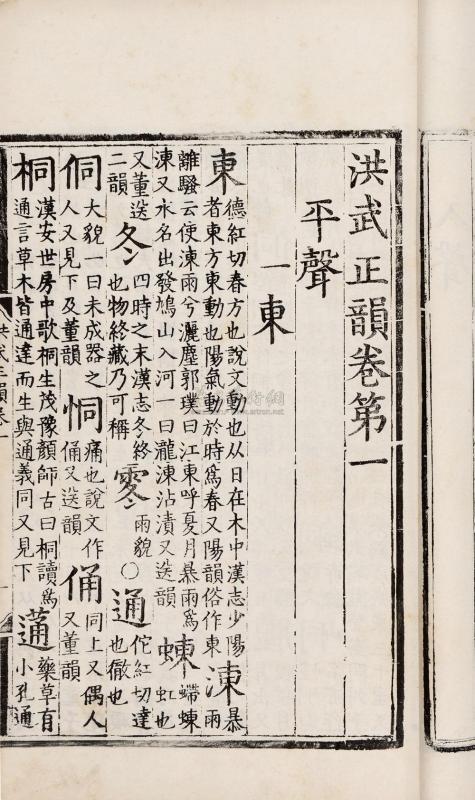 洪武正韻卷第一
平聲
一東
東德紅切春方也說文動也从日在木中漢志少陽者東方東動也陽氣動於時爲春又陽韻俗作東涷暴雨
離騷云使涷雨兮灑塵郭璞曰江東呼夏月暴雨爲涷又水名出發鳩山入河一曰瀧涷沾漬又送韻蝀螮蝀虹也
又董送二韻冬四時之末漢志冬終也物終藏乃可稱𩂓雨貌○通佗紅切達也徹也
侗大貌一曰未成器之人又見下及董韻恫痛也說文作俑又送韻俑同上又偶人又董韻
桐漢安世房中歌桐生茂豫顏師古曰桐讀爲通言草木皆通達而生與通義同又見下蓪藥草有小孔通
洪武正韻卷一